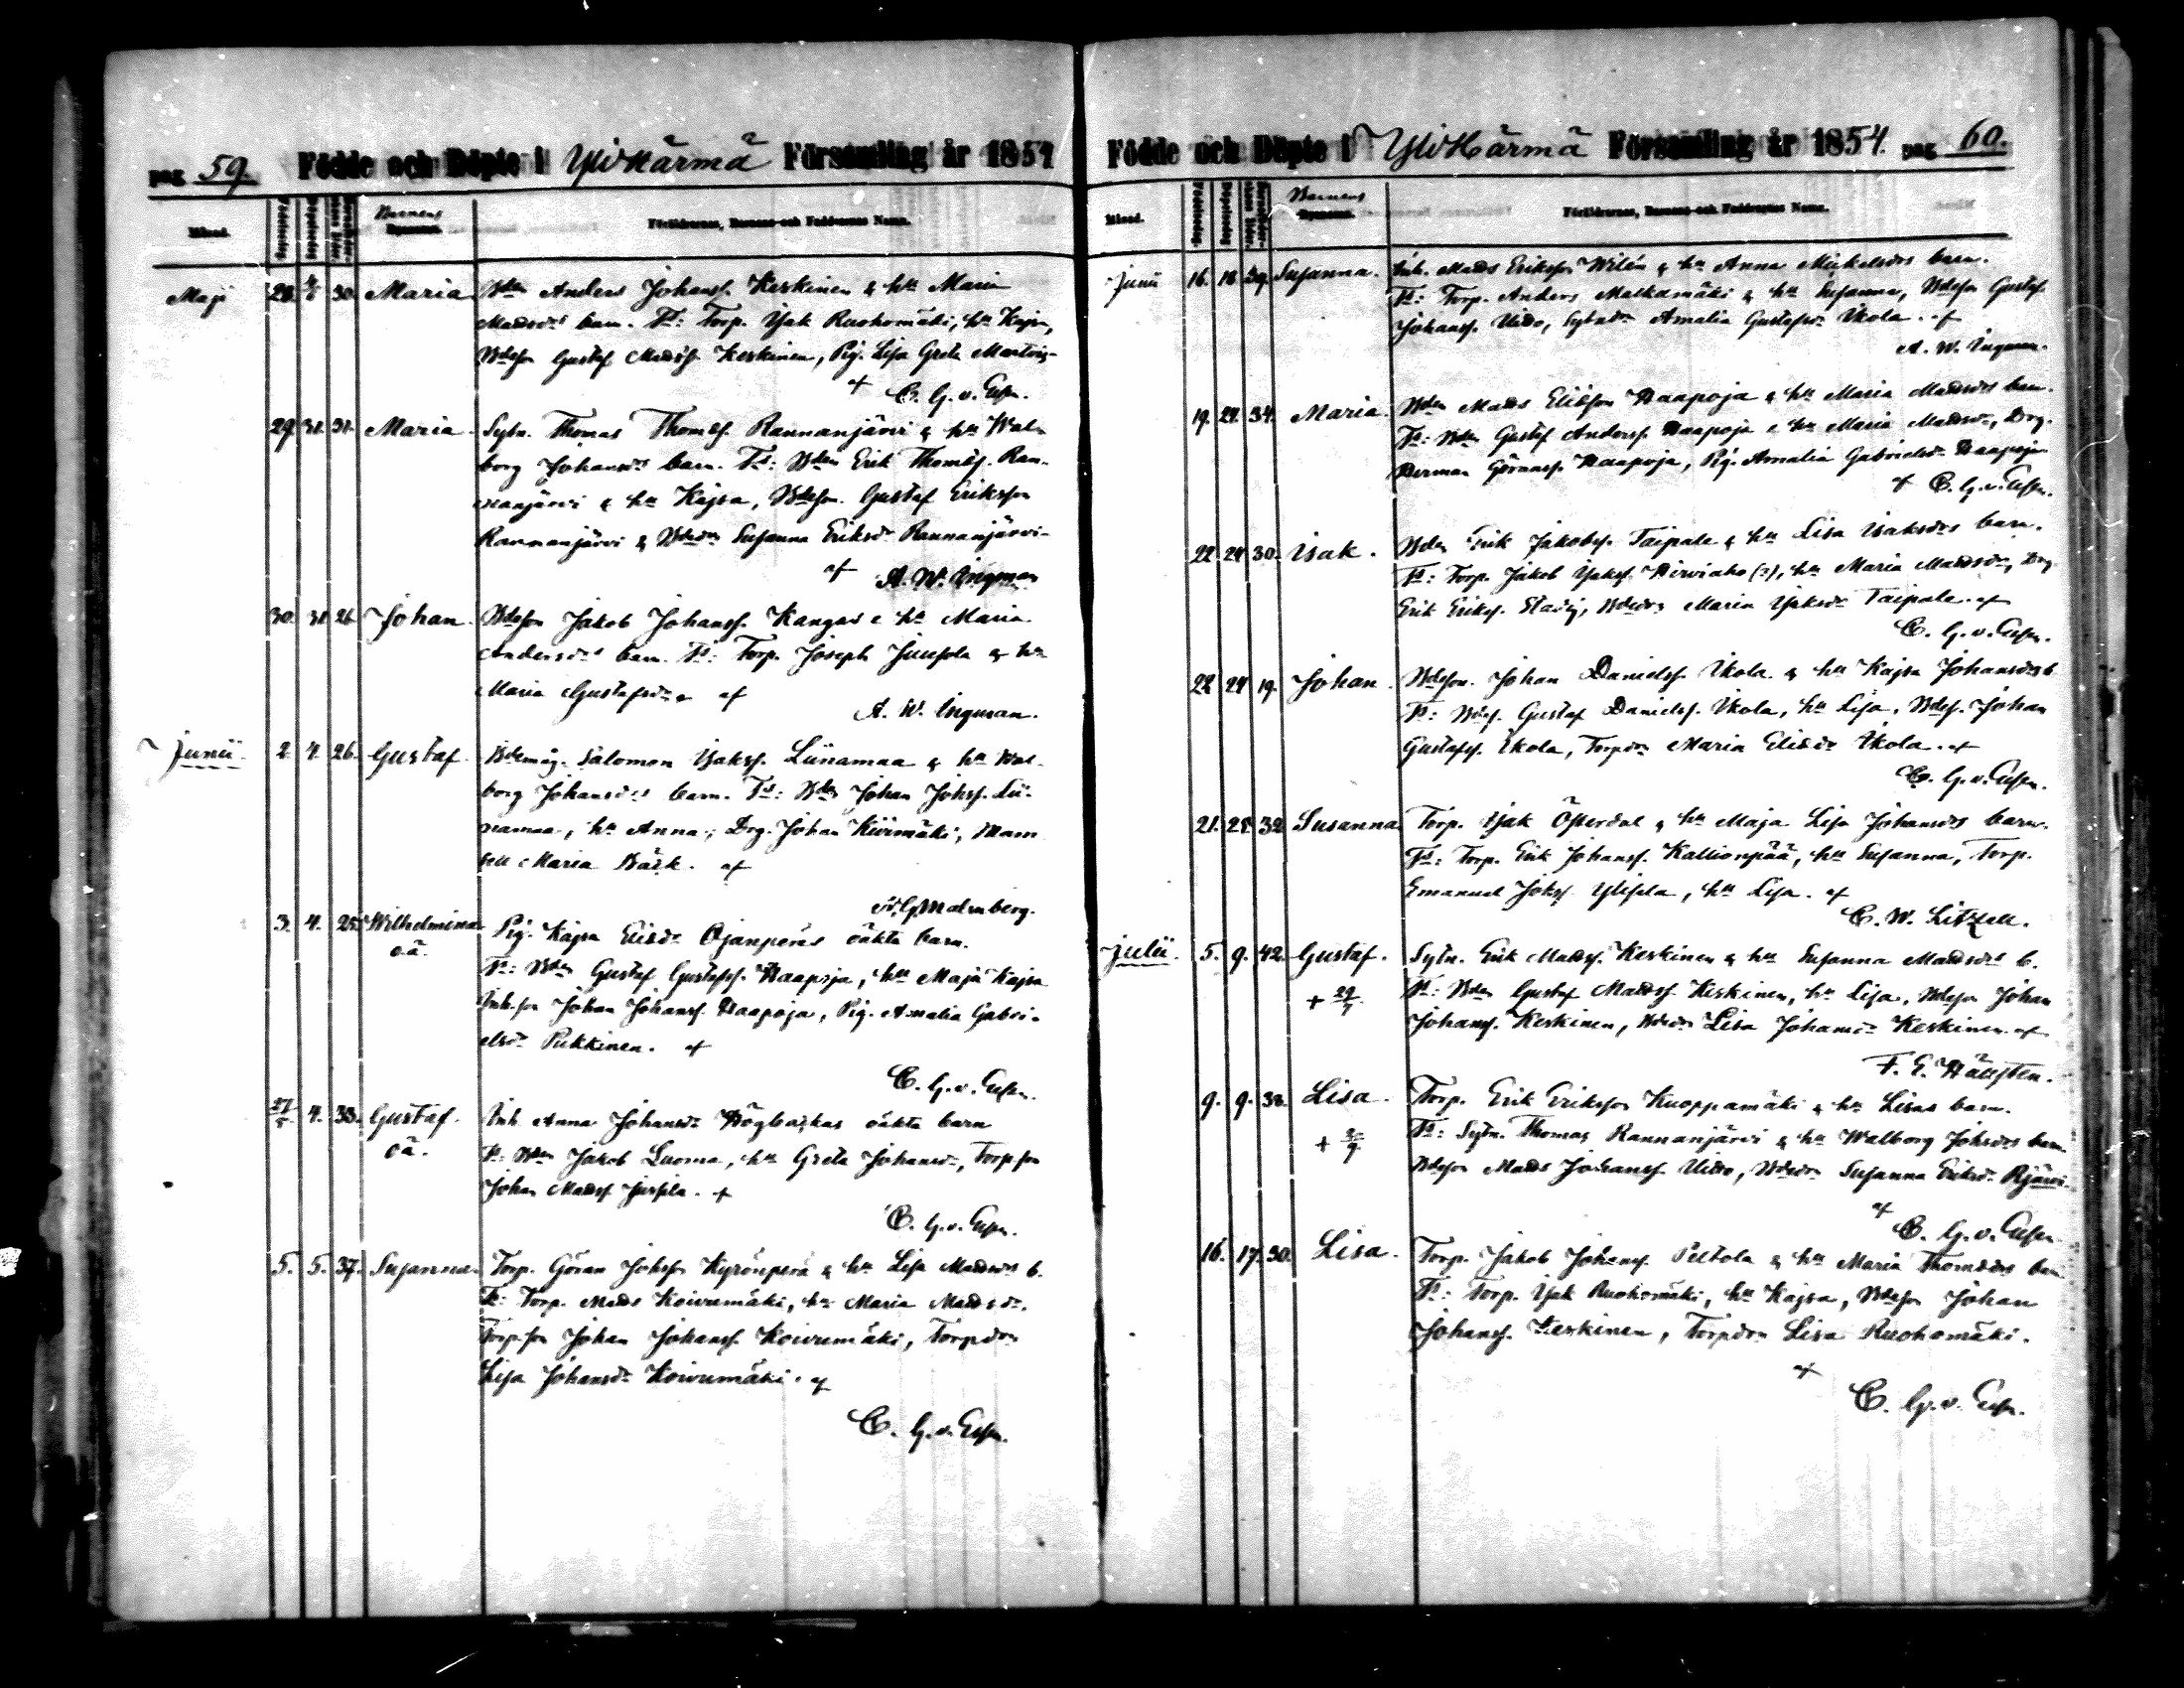 pag 59. Födde och Döpte i YliHärmä Församling år 1854
Månad. Födelsedag Döpelsedag Barnens Föräldrarnes, Barnens och Faddrarnes Namn.
Maji 28. 30. Maria Bdn Anders Johansf. Keskinen & hu Maria
Madsdrs barn. Fs: Torp. Isak Ruohomäki, hu Kajsa,
Bdeson Gustaf Madsf. Keskinen, Pig. Lisa Greta
af C. G. v. Essen.
29. 31. 31. Maria. Sytn. Thomas Thomsf. Rannanjärvi & hu Wal-
borg Johansdrs barn. Fs: Bdn Erik Thomsf. Ran-
nanjärvi & hu Kajsa, Bdeson. Gustaf Eriksson
Rannanjärvi & Bdedr Susanna Eriksdr Rannanjärvi-
af A. W. Ingman
30. 31. 26. Johan. Bdeson Jakob Johansf. Kangas & hu Maria
Andersdrs barn. Fs: Torp. Joseph Juusola & hu
Maria Gustafsdr. af
A. W. Ingman.
Junii. 2. 4. 26. Gustaf. Bdemåg. Salomon Isaksf. Liinamaa & hu Wal-
borg Johansdrs barn. Fs: Bdn Johan Johsf. Lii-
namaa, hu Anna, Drg. Johan Kivimäki, Mam
sell Maria Bäck. af
Malmberg.
3. 4. 25. Wilhelmina Pig. Kajsa Eliedr Ojanperäs oäkta barn.
oä.
Fs: Bdn Gustaf Gustafsf. Haapoja, hu Maja Kajsa
Inh.son Johan Johansf. Haapoja, Pig. Amalia Gabri-
elsdr Pukkinen. af
C. G. v. Essen.
4. 33. Gustaf. Inh. Anna Johansdr Högbackas oäkta barn
oä.
Fs: Bdn Jakob Luoma, hu Greta Johansdr, Torpson
Johan Madsf. Jussila. af
C. G. v. Essen.
5. 5. 37. Susanna. Torp. Göran Johsson Kyrönperä & hu Lisa Madsdrs b.
Fs: Torp. Mads Koivumäki, hu Maria Madsdr.
Torpson Johan Johansf. Koivumäki, Torpdr
Lisa Johansdr Koivumäki. af
C. G. v. Essen.
Födde och Döpte i YliHärmä Församling år 1854. pag 60.
Månad. Födelsedag Döpelsedag Barnens Föräldrarnes, Barnens och Faddrarnes Namn.
Junii 16. 18. 39. Susanna. Inh. Mads Eriksson Wilén & hu Anna Mickelsdrs barn.
Fs: Torp. Anders Matkamäki & hu Susanna, Bdeson Gustaf
Johansf. Uitto, Sytndr Amalia Gustafsdr Ekola. af
A. W. Ingman.
19. 24. 34. Maria. Bdn Mads Eliesson Haapoja & hu Maria Madsdrs barn.
Fs: Bdn Gustaf Andersf. Haapoja & hu Maria Madsdr, Drg.
Herman Göransf. Haapoja, Pig. Amalia Gabrielsdr Haapoja
af C. G. v. Essen.
22. 24. 30. Isak. Bdn Erik Jakobsf. Taipale & hu Lisa Isaksdrs barn.
Fs: Torp. Jakob Isaksf. Hirviaho (?), hu Maria Madsdr, Drg
Erik Eriksf. Stadig, Bdedr Maria Isaksdr Taipale. af
C. G. v. Essen.
22. 24. 19. Johan. Bdeson. Johan Danielsf. Ekola & hu Kajsa Johansdrs b
Fs: Bdesf. Gustaf Danielsf. Ekola, hu Lisa, Bdesf. Johan
Gustafsf. Ekola, Torpdr Maria Eliedr Ekola. af
C. G. v. Essen.
21. 25. 32. Susanna Torp. Isak Österdal & hu Maja Lisa Johansdrs barn.
Fs: Torp. Erik Johansf. Kallionpää, hu Susanna, Torp.
Emanuel Johsf. Ylisela, hu Lisa. af
C. W. Litzell.
Julii. 5. 9. 42. Gustaf. Sytn. Erik Madsf. Keskinen & hu Susanna Madsdrs b.
+ 29/7 Fs: Bdn Gustaf Madsf. Keskinen, hu Lisa, Bdeson Johan
Johansf. Keskinen, Bdedr Lisa Johansdr Keskinen. af
F. E. Hällsten.
9. 9. 38. Lisa. Torp. Erik Eriksson Knoppamäki & hu Lisas barn.
Fs: Sytn. Thomas Rannanjärvi & hu Walborg Johsdrs barn
Bdeson Mads Johansf. Uitto, Bdedr Susanna Eriksdr Rjärvi.
af C. G. v. Essen
16. 17. 30. Lisa. Torp. Jakob Johansf. Peltola & hu Maria Thomsdrs barn
Fs: Torp. Isak Ruohomäki, hu Kajsa, Bdeson Johan
Johansf. Keskinen, Torpdr Lisa Ruohomäki.
af
C. G. v. Essen.